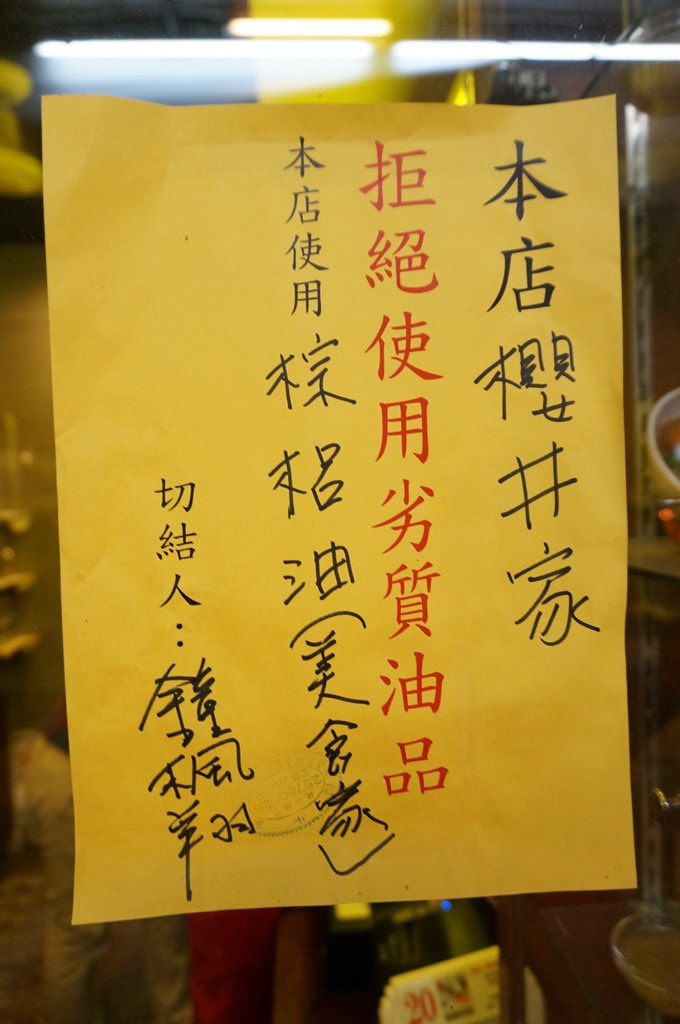 本店櫻井家
拒絕使用劣質油品
本店使用棕梠油(美食家)
切結人：鐘楓翔
20